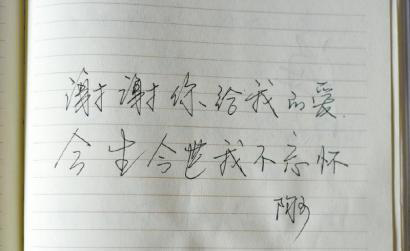 谢谢你给我的爱
今生今世我不忘怀